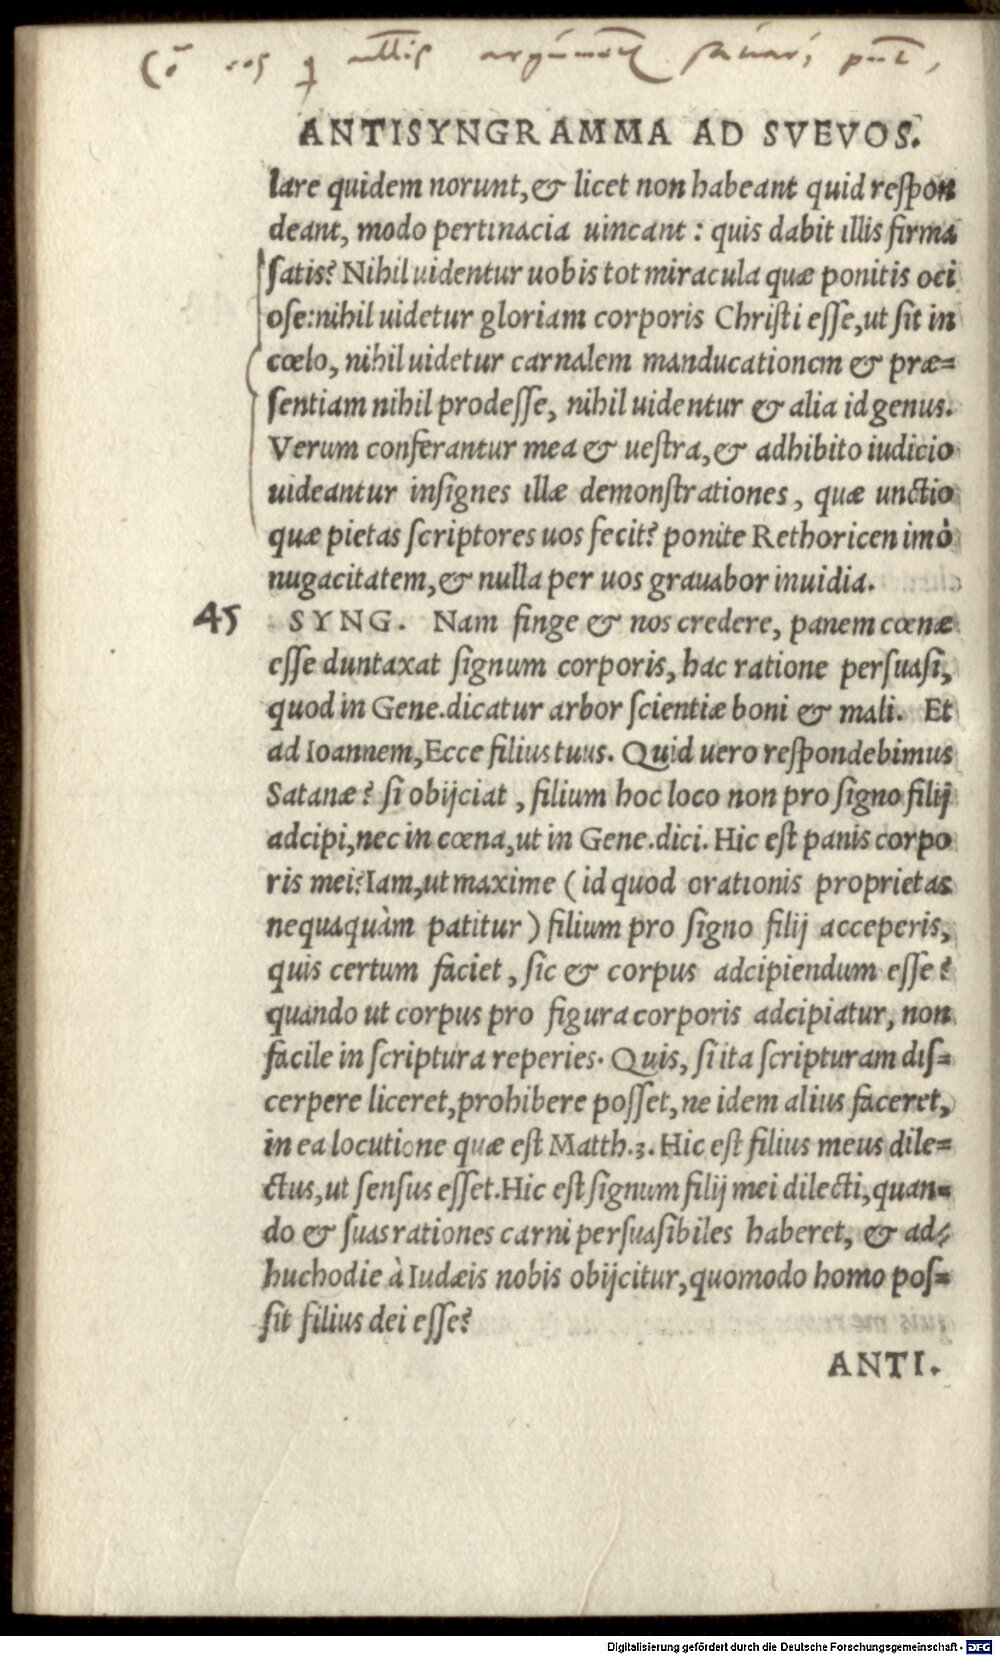 eos
ANTISYNGRAMMA AD SVEVOS.
lare quidem norunt, & licet non habeant quid respon
deant, modo pertinacia uincant : quis dabit illis firma
satis? Nihil uidentur uobis tot miracula quæ ponitis oci
ose: nihil uidetur gloriam corporis Christi esse, ut sit in
cœlo, nihil uidetur carnalem manducationem & præ=
sentiam nihil prodesse, nihil uidentur & alia id genus.
Verum conferantur mea & uestra, & adhibito iudicio
uideantur insignes illæ demonstrationes, quæ unctio
quæ pietas scriptores uos fecit? ponite Rethoricen imò
nugacitatem, & nulla per uos grauabor inuidia.
45 SYNG. Nam finge & nos credere, panem cœnæ
esse duntaxat signum corporis, hac ratione persuasi,
quod in Gene. dicatur arbor scientiæ boni & mali. Et
ad Ioannem, Ecce filius tuus. Quid uero respondebimus
Satanæ? si obijciat, filium hoc loco non pro signo filij
adcipi, nec in cœna, ut in Gene. dici. Hic est panis corpo
ris mei? Iam, ut maxime (id quod orationis proprietas
nequaquàm patitur) filium pro signo filij acceperis,
quis certum faciet, sic & corpus adcipiendum esse?
quando ut corpus pro figura corporis adcipiatur, non
facile in scriptura reperies. Quis, si ita scripturam dis=
cerpere liceret, prohibere posset, ne idem alius faceret,
in ea locutione quæ est Matth. 3. Hic est filius meus dile=
ctus, ut sensus esset. Hic est signum filij mei dilecti, quan=
do & suas rationes carni persuasibiles haberet, & ad=
huc hodie à Iudæis nobis obijcitur, quomodo homo pos=
sit filius dei esse?
ANTI.
Digitalisierung gefördert durch die Deutsche Forschungsgemeinschaft - DFG